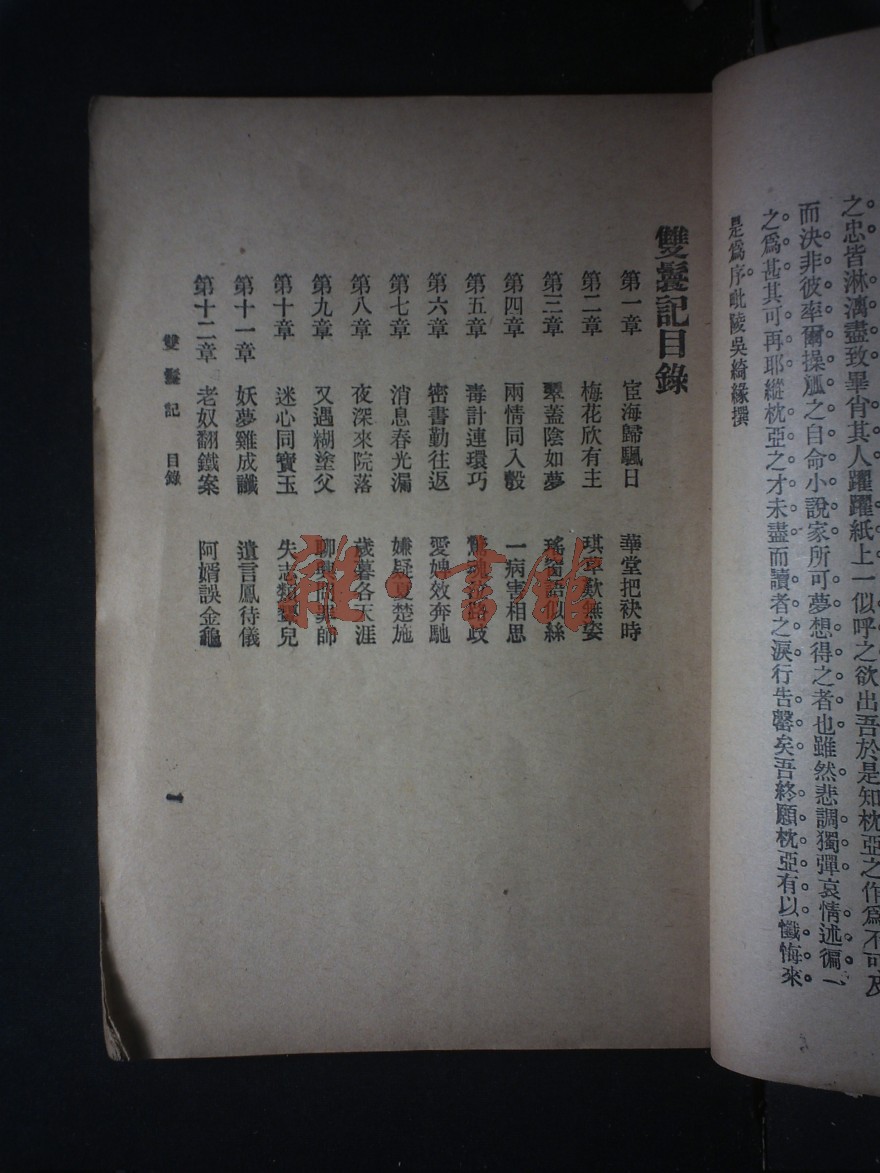 之忠皆淋漓盡致畢肖其人躍躍紙上一似呼之欲出吾於是知枕亞之作爲不可及
而決非彼率爾操觚之自命小說家所可夢想得之者也雖然悲調獨彈哀情述徧一
之爲甚其可再耶縱枕亞之才未盡而讀者之淚行告罄矣吾終願枕亞有以懺悔來
是爲序毗陵吳綺緣撰
雙鬟記目錄
第一章 宦海歸颿日 華堂把袂時
第二章 梅花欣有主 琪草歎無姿
第三章 翠蓋陰如夢 瑤窗語似絲
第四章 兩情同入彀 一病害相思
第五章 毒計連環巧 驚魂 路歧
第六章 密書勤往返 愛婢效奔馳
第七章 消息春光漏 嫌疑夏楚施
第八章 夜深來院落 歲暮各天涯
第九章 又遇糊塗父 聊興問罪師
第十章 迷心同寶玉 失志類 兒
第十一章 妖夢雞成讖 遺言鳳待儀
第十二章 老奴翻鐵案 阿婿誤金龜
雙鬟記 目錄
一
雜·書館